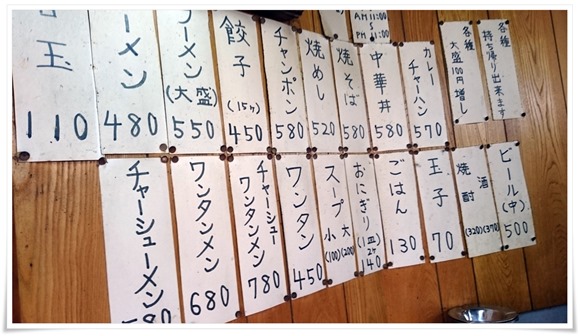 各種
持ち帰り出来ます
各種
大盛100円増し
AM 11:00
〜
PM 11:00
カレーチャーハン
570
中華丼
580
焼そば
580
焼めし
520
チャンポン
580
餃子
(15ヶ)
450
ラーメン
(大盛)
550
ラーメン
480
玉
110
ビール(中)
500
酒
(370)
焼酎
(320)
玉子
70
ごはん
130
おにぎり
(1皿2ヶ)
140
スープ
大(200)
小(100)
ワンタン
450
チャーシューワンタンメン
780
ワンタンメン
680
チャーシューメン
580